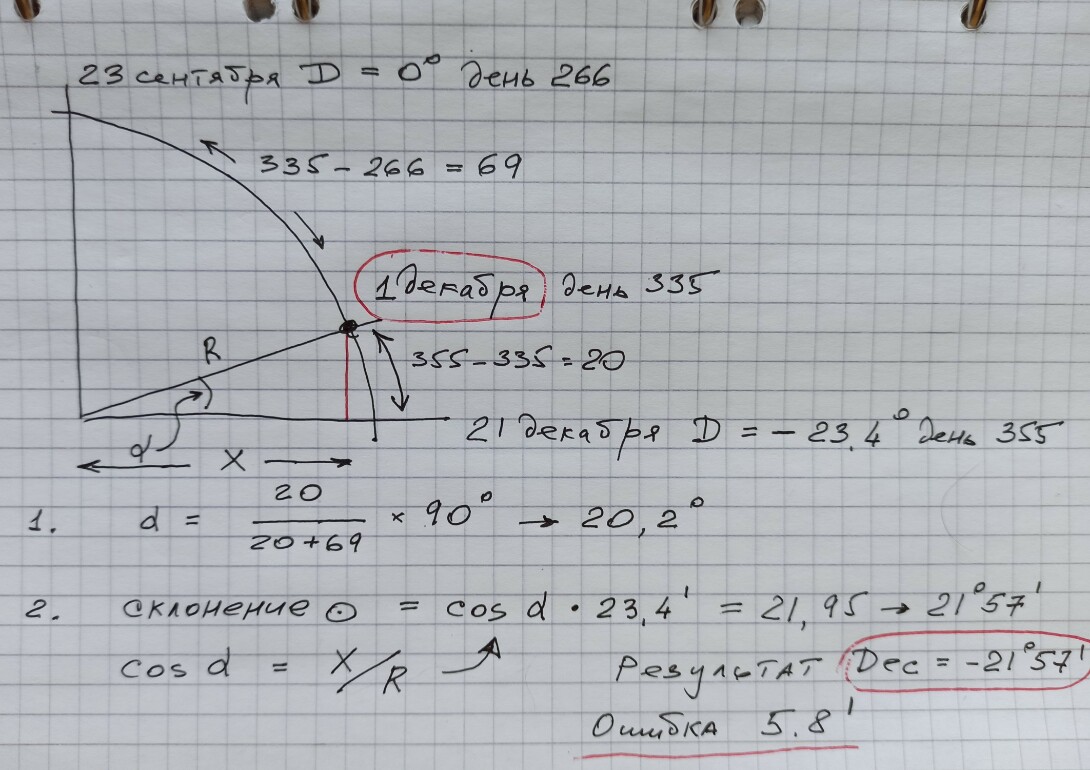 23 сентября D = 0° день 266
335 - 266 = 69
1 декабря день 335
R
355 - 335 = 20
21 декабря D = - 23,4° день 355
α
X
1. α = 20 / 20+69 × 90° → 20,2°
2. склонение ⊙ = cos α · 23,4' = 21,95 → 21°57'
cos α = X/R
Результат Dec = -21°57'
Ошибка 5.8'